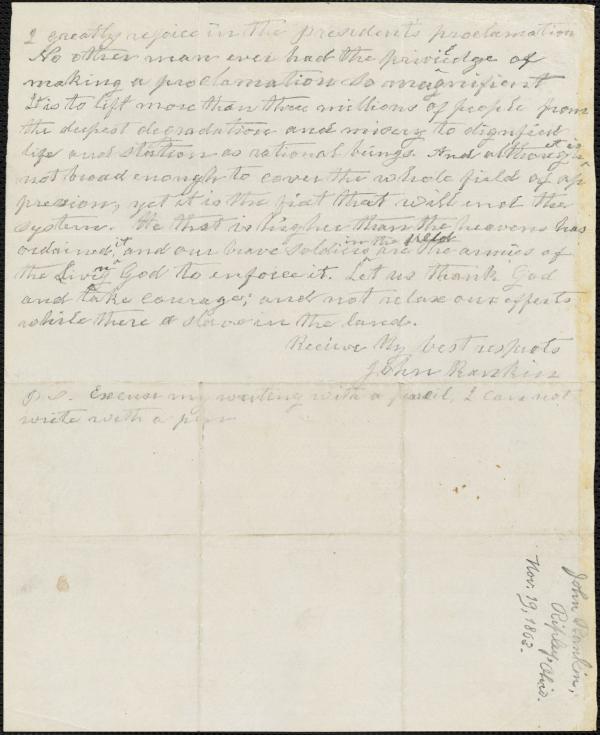 I greatly rejoice in the presidents proclamation
No other man ever had the priviEdge of
making a proclamation so magnifient
It is to lift more than three millions of people from
the deepest degradation and misery to dignified
life and station as rational beings. And although it is
not broad enough to cover the whole field of op
pression, yet it is the fiat that will end the
system. He that is higher than the heavens has
ordained it, and our brave soldiers in the field are the armies of
the Living God to enforce it. Let us thank God
and take courage; and not relax our efforts
while there a slave in the land.
Recieve My best respects
John Rankin
P.S. Excuse my writing with a pencil, I can not
write with a pen
John Rankin,
Ripley, Ohio.
Nov. 19, 1863.